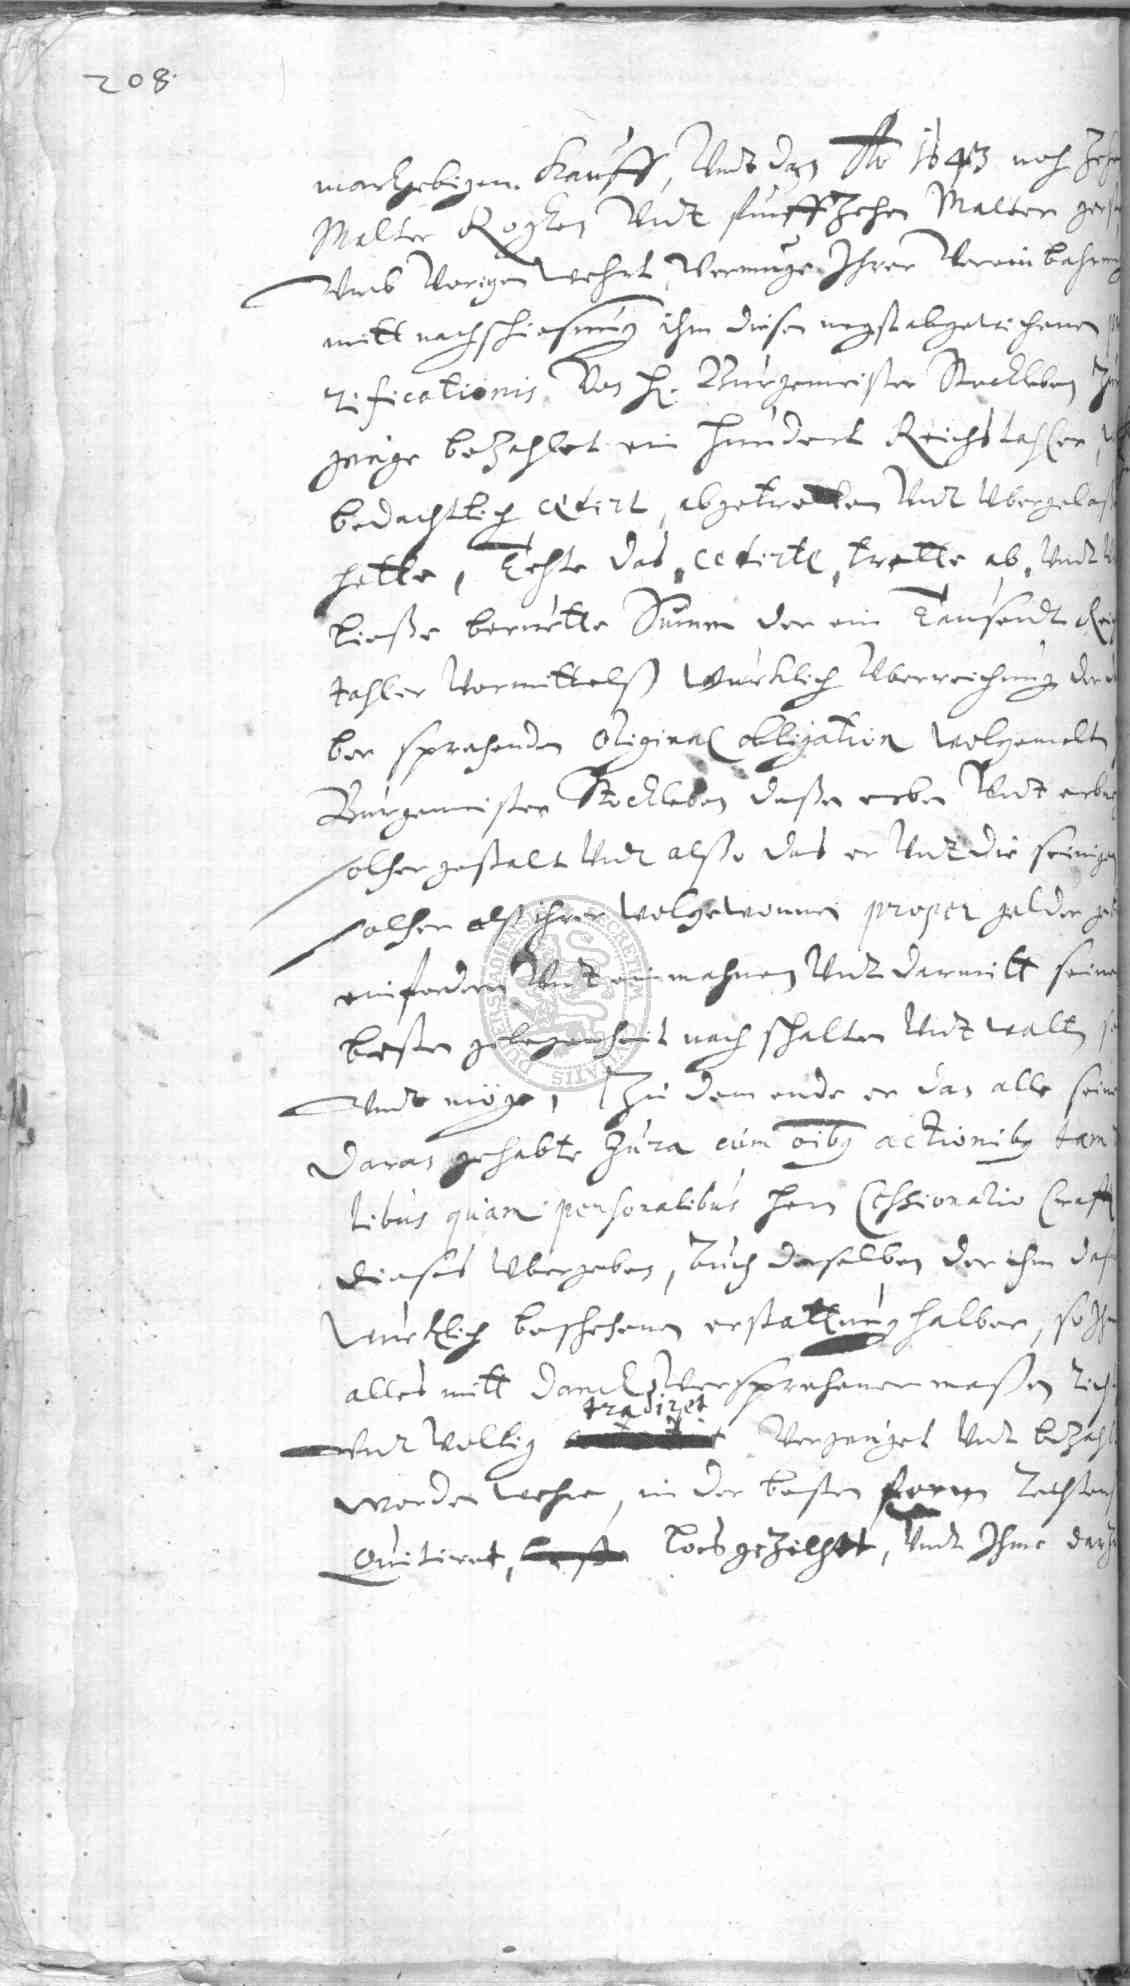 208.
markgebigen Kauff, Undt dan Ao 1643 noch Zehen
Malter Rogken Undt funffzehen Malter gerst
Umb Vorigen wehrt, Vermuge Ihrer Vereinbahrung
mitt nachschiesung ihm diesen negstabgewichenen
rificationis Von H. Burgemeister Stockleben
genüge bezahlet ein hundert Reichsthaler,
bedachtlich cedirt, abgetretten Undt Ubergelaß
hette, Thete das, cedirte, trette ab, Undt
ließe berürtte Summ der ein Tausendt Reichs
tahler Vormittelß würklich Uberreichung der
ber sprechenden Original obligation wolgemelten
Burgemeister Stockleben deßen erben Undt
solcher gestalt Undt also das er Undt die seinigen
solcher alß ihrer wolgewonnen proper gelder
einfodern Undt einmahnen Undt darmitt seiner
besten gelegenheit nach schalten Undt walten
Undt möge, Zu dem ende er dan alle seine
daran gehabte Jura cum oibg actionibg tam
libus quam personalibus hern Cessionario Crafft
dieses Ubergeben, Auch denselben der ihm
würklich beschehenen erstattung halber, so Ihm
alles mitt danck Versprochener maßen
tradiret
Undt Vollig Vergenüget Undt bezahlt
worden wehre, in der besten form Rechtens
Quitiret, losgezehlet, Undt Ihme
SECRETUM CIVITATIS